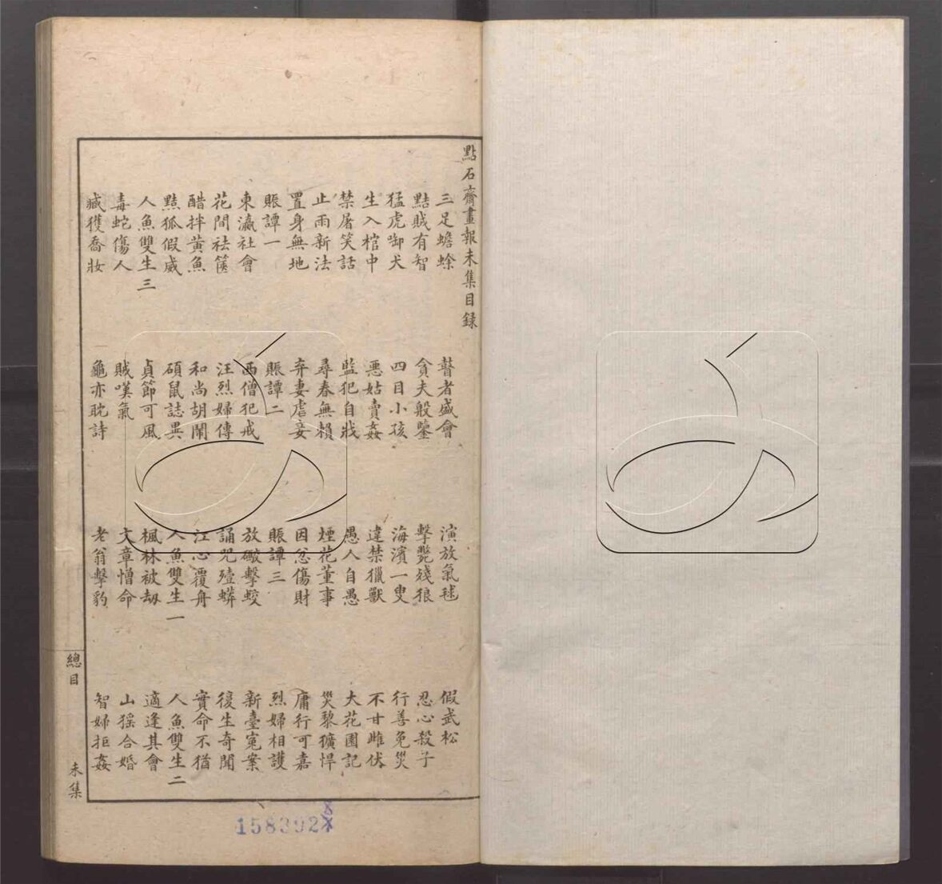 點石齋畫報未集目錄
三足蟾蜍 瞽者盛會 演放氣毬 假武松
黠賊有智 貪夫殷鑒 擊斃殘狼 忍心殺子
猛虎啣犬 四目小孩 海濱一叟 行善免災
生入棺中 惡姑賣姦 違禁獵獸 不甘雌伏
禁屠笑話 監犯自戕 愚人自愚 大花園記
止雨新法 尋春無賴 煙花董事 災黎獷悍
置身無地 弃妻虐妾 因忿傷財 庸行可嘉
賬譚一 賬譚二 賬譚三 烈婦相護
東瀛社會 西僧犯戒 放礮擊蛟 新臺寃案
花間祛篋 汪烈婦傳 誦咒殪蟒 復生奇聞
醋拌黃魚 和尚胡鬧 江心覆舟 實命不猶
黠狐假威 碩鼠誌異 人魚雙生一 人魚雙生二
人魚雙生三 貞節可風 楓林被劫 適逢其會
毒蛇傷人 賊嘆氣 文章憎命 山猺合婚
臧獲喬妝 龜亦耽詩 老翁擊豹 智婦拒姦
總目 未集
158392